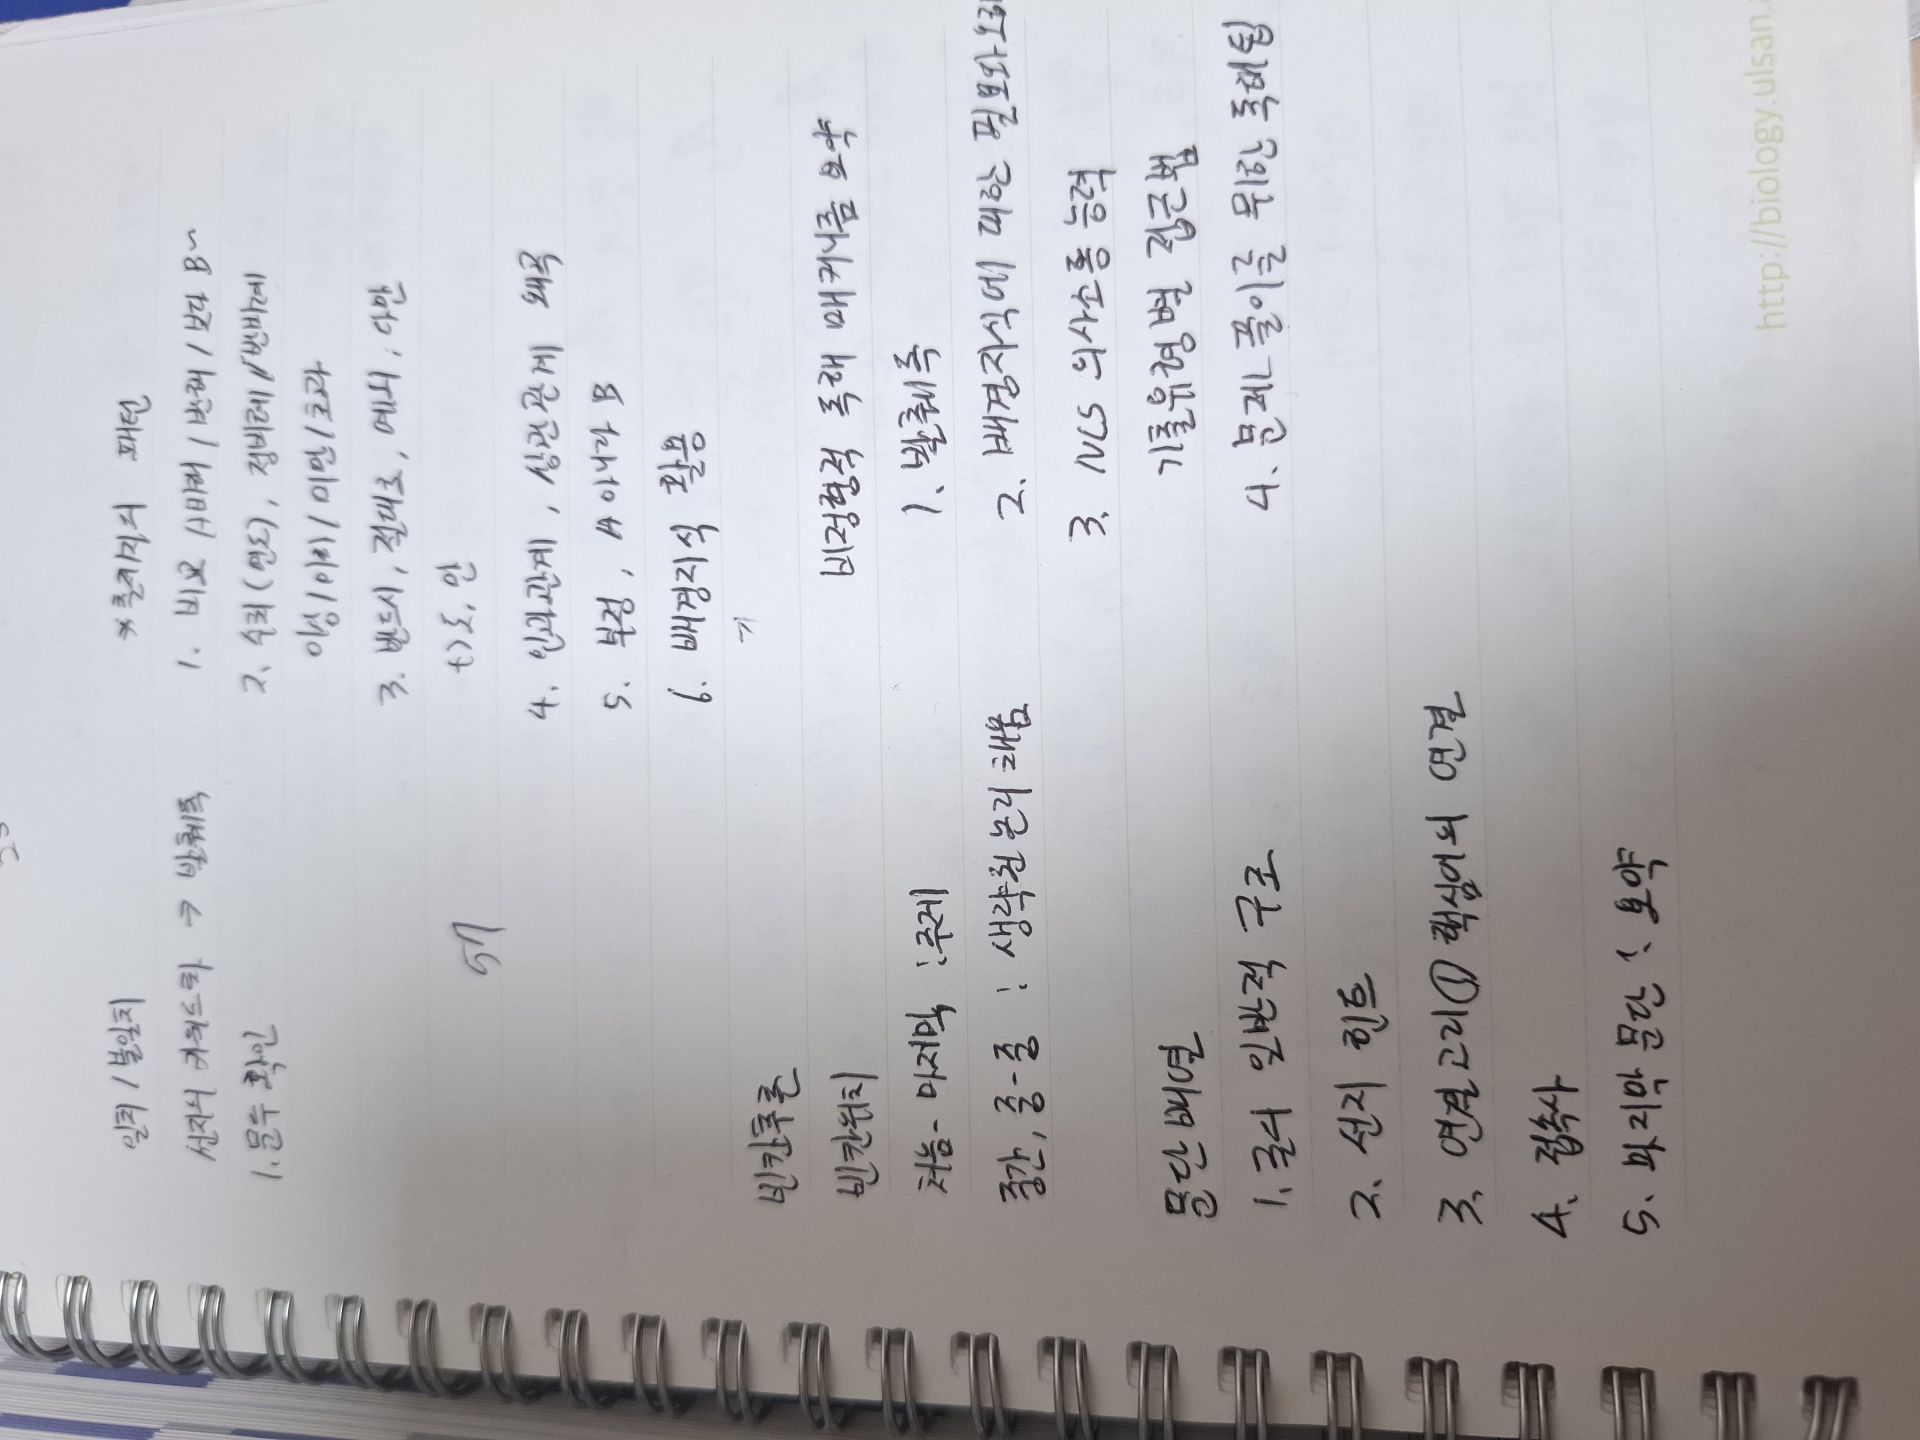 일치/불일치
선지의 키워드화 → 발췌독
1. 문두 확인
57
*출제지의 패턴
1. 비교 / / / 보다 B~
2. 수치(연도), 정비례/반비례
이상/이하/미만/초과
3. 반드시, 절대로, 에서,
4. 인과관계, 상관관계 왜곡
5. 부정, A 아니라 B
6. 배경지식 활용
빈칸추론
빈칸위치
처음-마지막 : 주제
중간, 중-중 : 생략된 논리 채움
문단배열
1. 글의 일반적 구조
2. 선지 힌트
3. 연결고리① 핵심어의 연결
4. 접속사
5. 마지막 문단 : 요약
비정형적 독해 매커니즘 요약
1. 발췌독
2. 배경지식에 따른
3. NCS 의사소통능력
기출유형별 접근법
4. 문제풀이를 위한 독해팁
http://biology.ulsan.